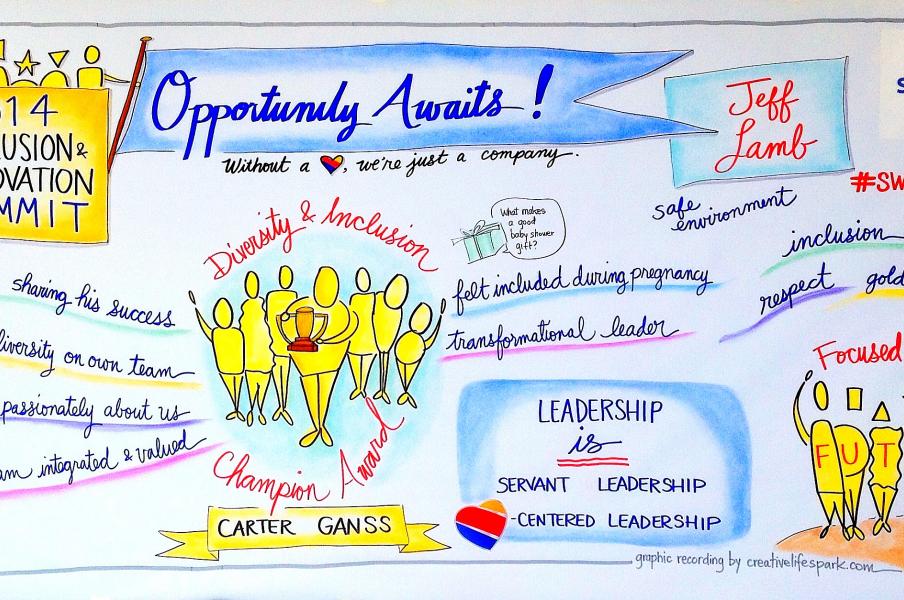 14
USION &
OVATION
MMIT
Opportunity Awaits!
Without a , we're just a company.
Jeff
Lamb
#SW
safe
environment
inclusion
respect gold
What makes
a good
baby shower
gift?
felt included during pregnancy
transformational leader
Diversity & Inclusion
Champion Award
CARTER GANSS
sharing his success
diversity on own team
passionately about us
am integrated & valued
LEADERSHIP
is
SERVANT LEADERSHIP
-CENTERED LEADERSHIP
Focused
F U T
graphic recording by creativelifespark.com